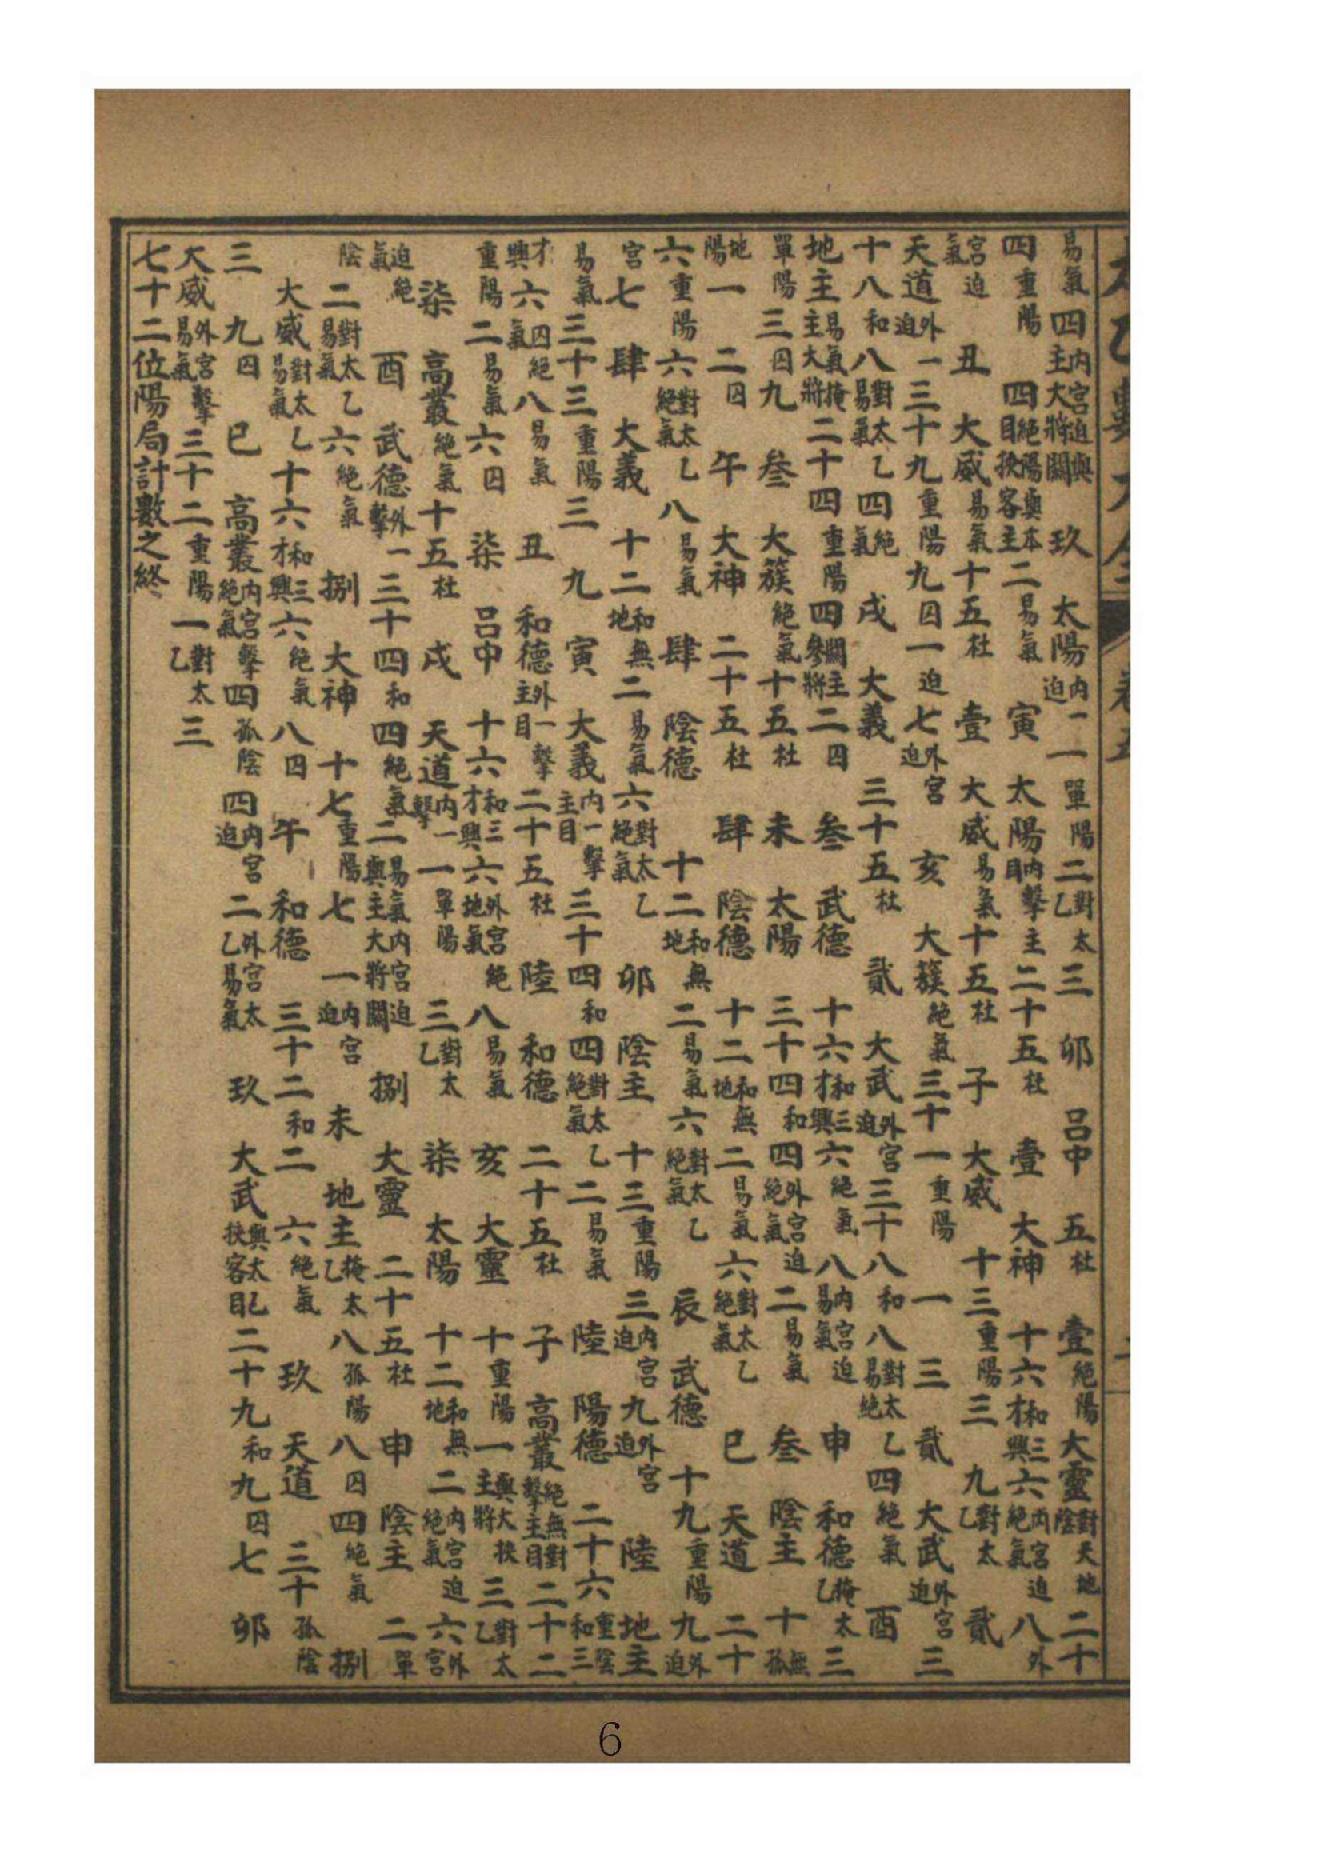 易氣四內宮迫與主大將關　玖　太陽內迫一一單陽二對太乙三　卯　呂申　五杜　壹絕陽大靈對天地陰二十
四重陽　四絕陽與本目挾客主二易氣　寅　太陽內擊主目二十五杜　壹　大神　十六和三才興六內宮迫絕氣八外
宮迫氣　丑　大威易氣十五杜　壹　大威易氣十五杜　子　大威　十三重陽三　九對太乙　貳
天道外迫一三十九重陽九囚一迫七外宮迫　亥　大簇絕氣三十一重陽　一　三　貳　大武外宮迫三
十八和八對太乙易氣四絕氣　戌　大義　三十五杜　貳　大武外宮迫三十八和八對太乙易絕四絕氣　酉
地主易氣掩主大將二十四重陽四關主參將二囚　叁　武德　十六和三才興六絕氣八內宮迫易氣　申　和德掩太乙三
單陽三囚九　叁　大簇絕氣十五杜　未　太陽　三十四和四外宮迫絕氣二易氣　叁　陰主　十無孤
地陽一　二囚　午　大神　二十五杜　肆　陰德　十二和無地二易氣六對太乙絕氣　巳　天道　二十
六重陽六對太乙絕氣八易氣　肆　陰德　十二和無地二易氣六對太乙絕氣　辰　武德　十九重陽九外迫
宮七　肆　大義　十二和無地二易氣六對太乙絕氣　卯　陰主　十三重陽三內宮迫九外宮迫　陸　地主
易氣三十三重陽三　九　寅　大義內一擊主目三十四和四對太乙絕氣二易氣　陸　陽德　二十六重陰和三
才興六囚絕氣八易氣　丑　和德外一擊主目二十五杜　陸　和德　二十五杜　子　高叢絕無對擊主目二十二
重陽二易氣六囚　柒　呂申　十六和三才興六外宮絕地氣八易氣　亥　大靈　十重陽一與大挾主將三對太乙
柒　高叢絕氣十五杜　戌　天道內一擊一單陽　三對太乙　柒　太陽　十二和無地二內宮迫絕氣六外宮
迫絕氣　酉　武德外擊一三十四和四絕氣二易氣內宮迫與主大將關　捌　大靈　二十五杜　申　陰主　二單
陰　二對太乙易氣六絕氣　捌　大神　十七重陽七　一內宮迫　未　地主掩太乙八孤陽八囚四絕氣　捌
大威對太乙易氣十六和三才興六絕氣八囚　午　和德　三十二和二　六絕氣　玖　天道　三十孤陰
三　九囚　巳　高叢內宮擊絕氣四孤陰四內宮迫　二外宮太乙易氣　玖　大武與太乙挾客目二十九和九囚七　卯
大威外宮擊易氣三十二重陽一對太乙三
七十二位陽局計數之終
6